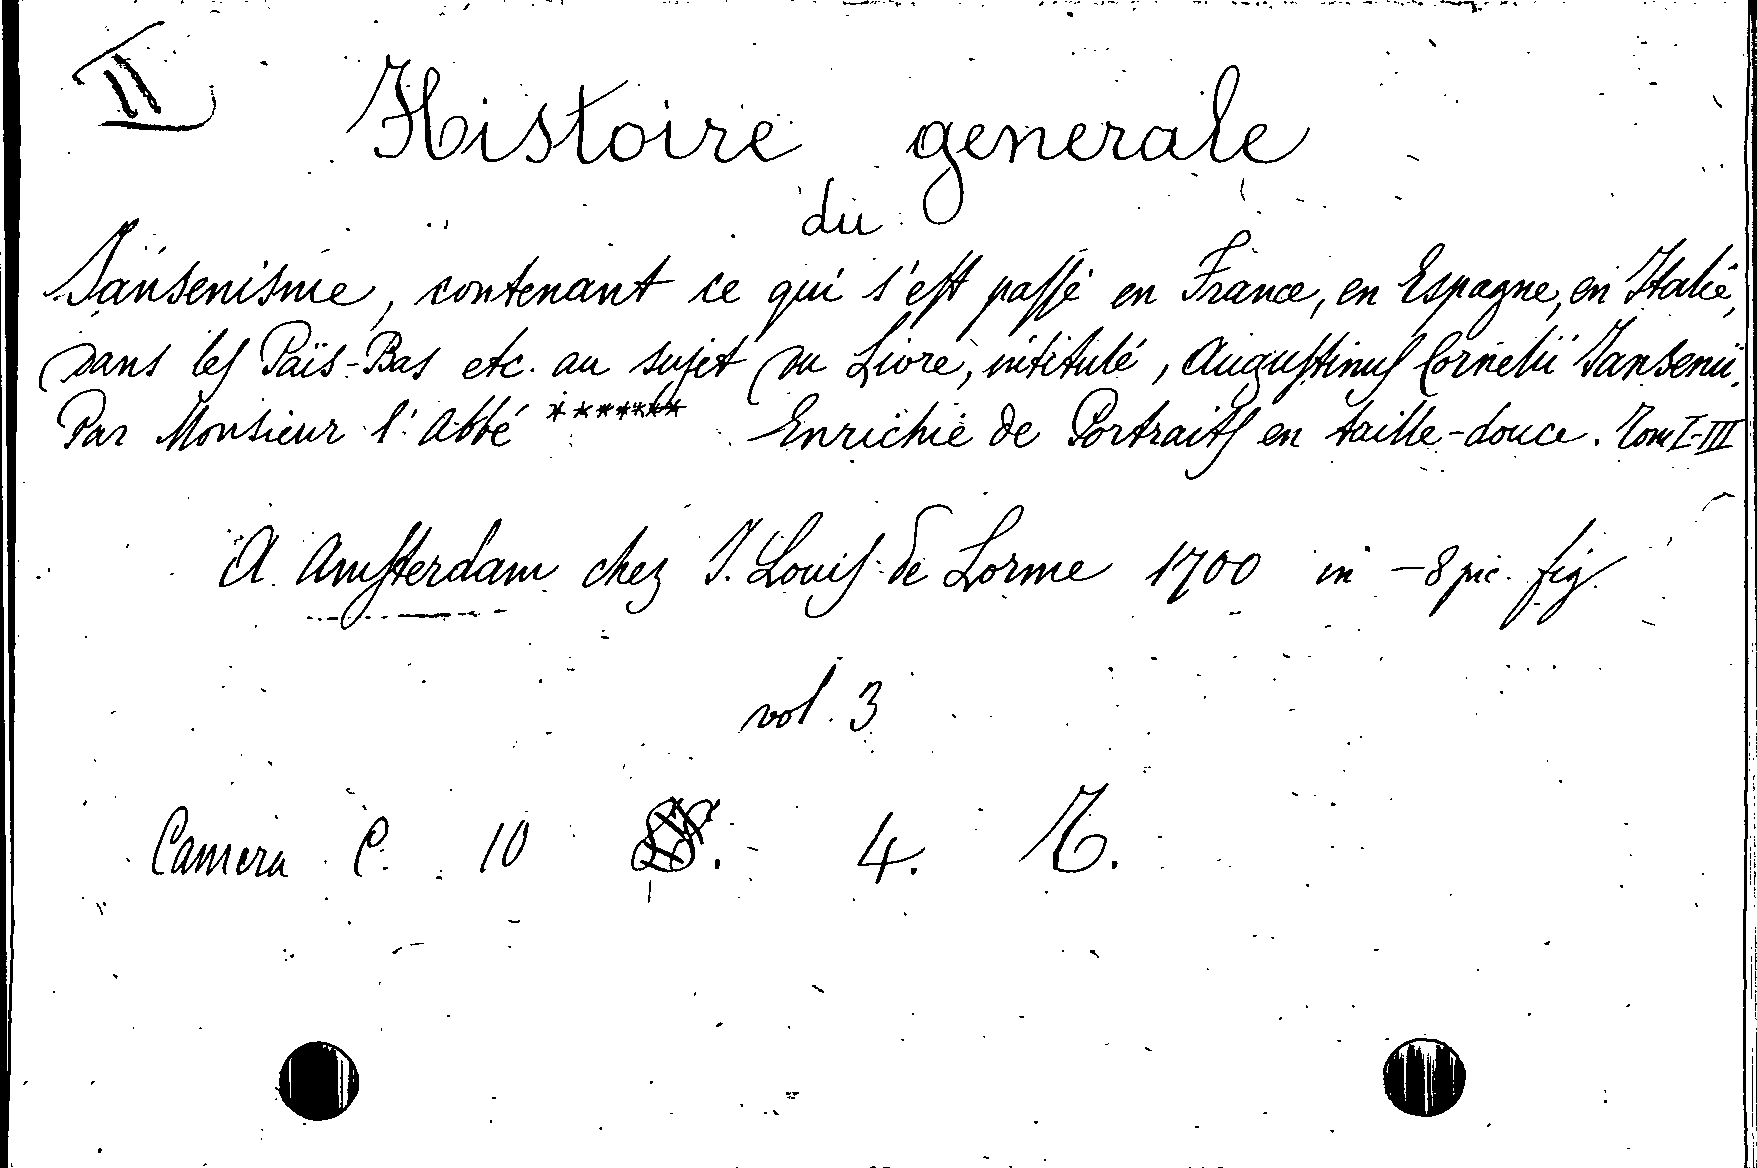 II
Histoire generale
du
Jansenisme, contenant ce qui s'est passé en France, en Espagne, en Italie,
dans les Païs-Bas etc. au sujet du Livre, intitulé, Augustinus Cornelii Jansenii.
Par Monsieur l'Abbé ******* Enrichie de Portraits en taille-douce. Tom I-III
A Amsterdam chez J. Louis de Lorme 1700 in -8 pic. fig.
vol. 3
Camera C. 10 4. T.